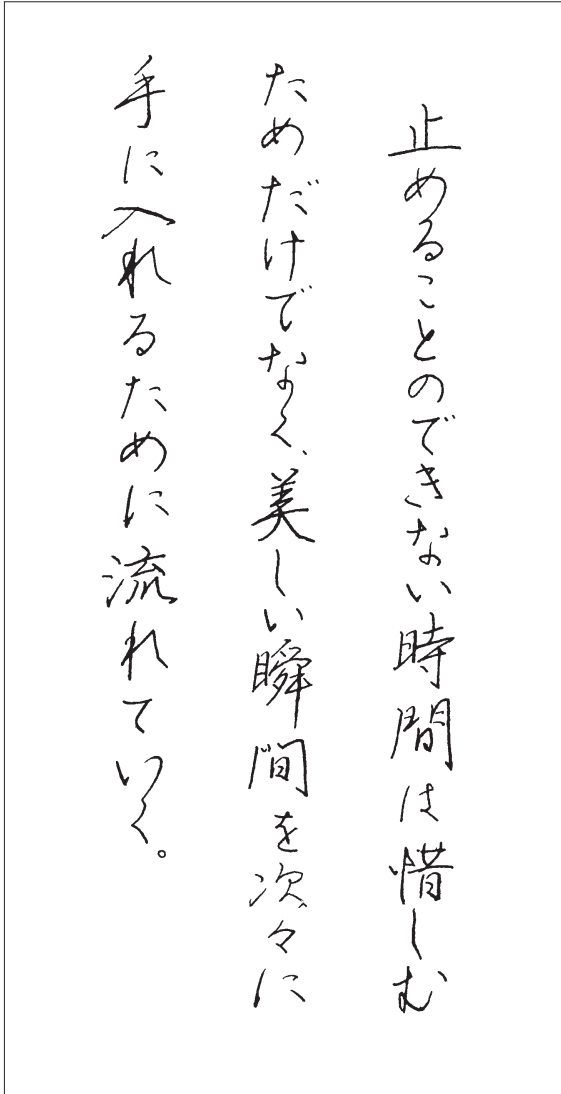 止めることのできない時間は惜しむ
ためだけでなく、美しい瞬間を次々に
手に入れるために流れていく。